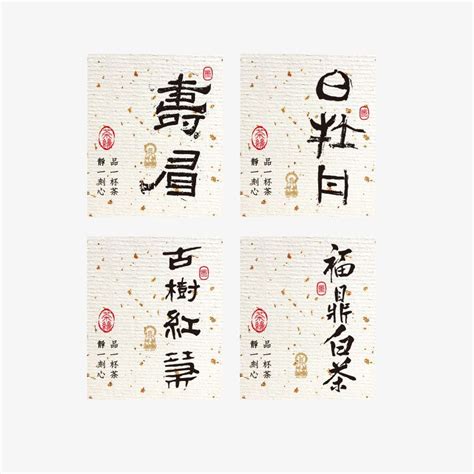 壽眉
品一杯茶
靜一刻心
白牡丹
品一杯茶
靜一刻心
古樹紅茶
品一杯茶
靜一刻心
福鼎白茶
品一杯茶
靜一刻心